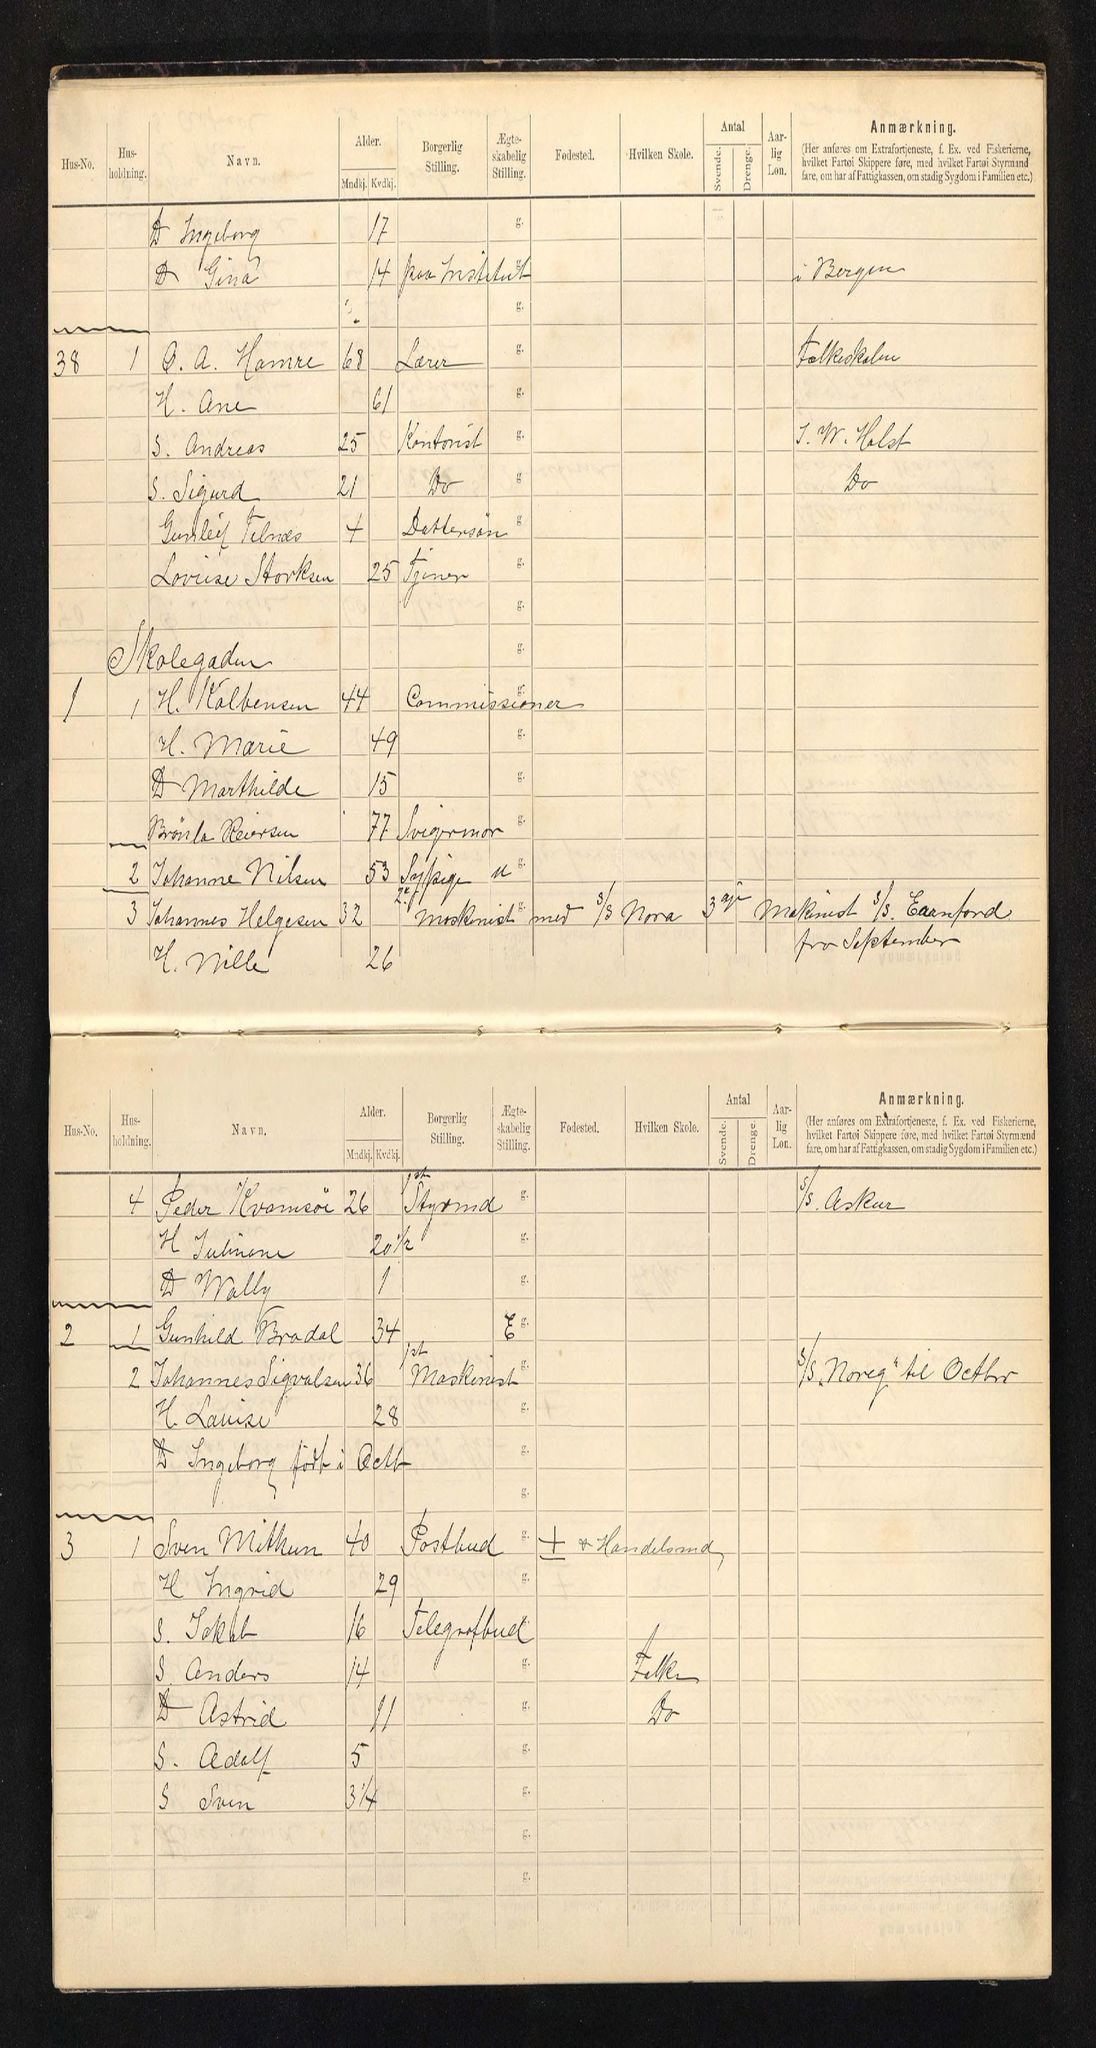 Hus-No. Hus-holdning. Navn. Alder. Mndkj. Kvdkj. Borgerlig Stilling. Ægte-skabelig Stilling. Fødested. Hvilken Skole. Antal Svende. Drenge. Aar-lig Løn. Anmærkning.
(Her anføres om Extrafortjeneste, f. Ex. ved Fiskerierne, hvilket Fartøi Skippere føre, med hvilket Fartøi Styrmænd fare, om har af Fattigkassen, om stadig Sygdom i Familien etc.)
D Ingeborg 17 g.
D Gina 14 paa Institut g. i Bergen
g.
38 1 O. A. Hamre 68 Lærer g. Folkeskolen
H. Ane 61 g.
S. Andreas 25 Kontorist g. J. W. Holst
S. Sigurd 21 Do g. Do
Gunleif Felnæs 4 Dattersøn g.
Lovise Storksen 25 Tjener g.
g.
Skolegaden g.
1 1 H. Kolbensen 44 Commissioner g.
H. Marie 49 g.
D Marthilde 15 g.
Reiersen 77 Svigermor g.
2 Johanne Nilsen 53 Sypige u g.
3 Johannes Helgesen 32 2den Maskinist g. med S/S Nora 3 Makinist S/S. Earnford
fra September
H. Nille 26
Hus-No. Hus-holdning. Navn. Alder. Mndkj. Kvdkj. Borgerlig Stilling. Ægte-skabelig Stilling. Fødested. Hvilken Skole. Antal Svende. Drenge. Aar-lig Løn. Anmærkning.
(Her anføres om Extrafortjeneste, f. Ex. ved Fiskerierne, hvilket Fartøi Skippere føre, med hvilket Fartøi Styrmænd fare, om har af Fattigkassen, om stadig Sygdom i Familien etc.)
4 Peder Kvamsöe 26 1st Styrmd g. S/S. Askur
H Juliane 20 1/2 g.
D Wally 1 g.
2 1 Gunhild Bradal 34 E g.
2 Johannes Sigvalsen 36 1st Maskinist g. S/S „Noreg" til Octbr
H. Lauise 28 g.
D Ingeborg født i Octb g.
g.
3 1 Sven Mithun 40 Postbud g. + Handelsmd
H Ingrid 29 g.
S. Jakob 16 Telegrafbud
S. Anders 14 g. Folke
D Astrid 11 g. Do
S. Adolf 5 g.
S Sven 3 1/4 g.
g.
g.